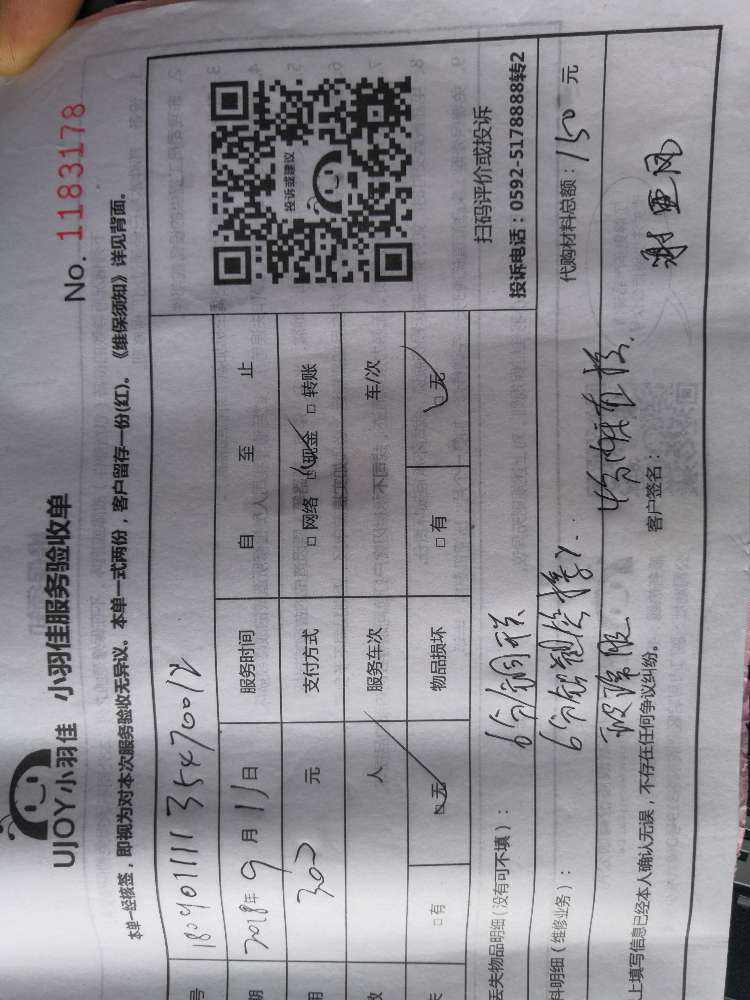 UJOY小羽佳 小羽佳服务验收单
No. 1183178
本单一经核签，即视为对本次服务验收无异议。本单一式两份，客户留存一份(红)。《维保须知》详见背面。
号 18090111135470012
期 2018年9月11日 服务时间 自 至 止
用 300 元 支付方式 □ 网络 □ 现金 □ 转账
数 人 服务车次 车/次
失 □ 有 □ 无 物品损坏 □ 有 □ 无
投诉或建议
扫码评价或投诉
投诉电话：0592-5178888转2
丢失物品明细(没有可不填)： 6分铜
料明细(维修业务)： 6分
代购材料总额：150 元
上填写信息已经本人确认无误，不存在任何争议纠纷。 客户签名： 谢亚风